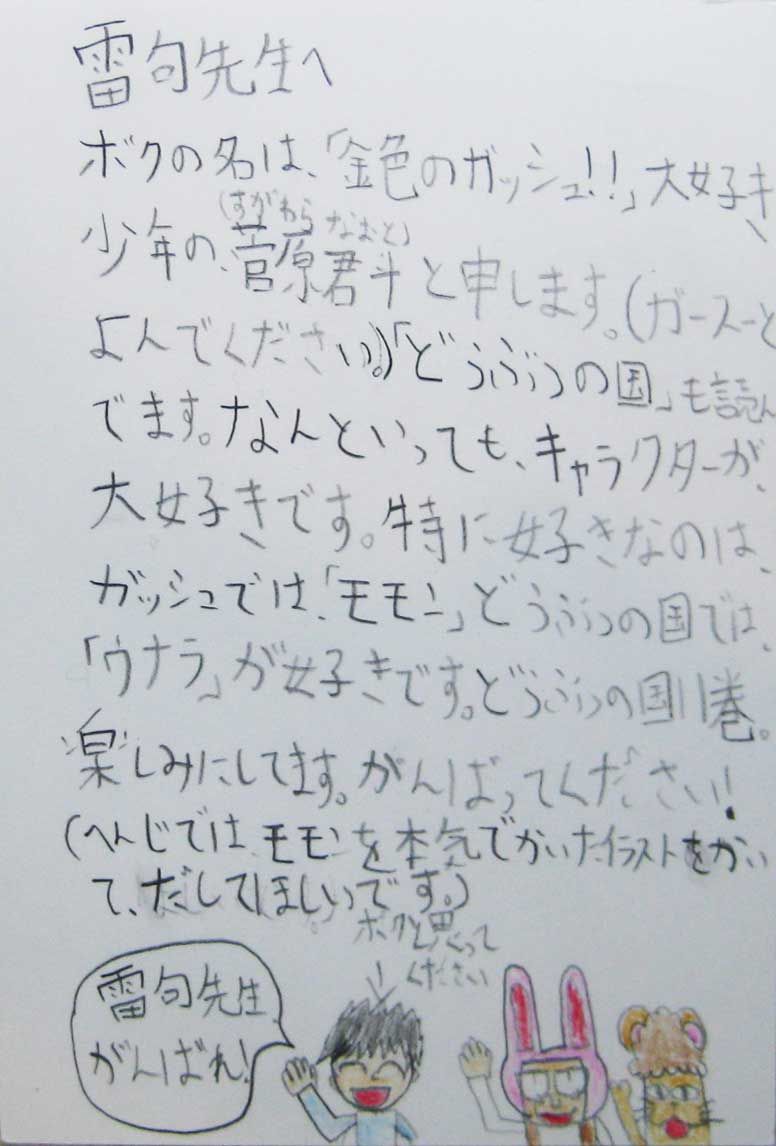 雷句先生へ
ボクの名は、「金色のガッシュ!!」大好き
(すがわら なおと)
少年の、菅原君斗と申します。(ガースーと
よんでください。)「どうぶつの国」も読ん
でます。なんといっても、キャラクターが、
大好きです。特に好きなのは、
ガッシュでは、「モモン」どうぶつの国では、
「ウナラ」が好きです。どうぶつの国11巻。
楽しみにしてます。がんばってください!
(へんじでは、モモンを本気でかいたイラストをかい
て、だしてほしいです。)
ボクと思って
ください
雷句先生
がんばれ!